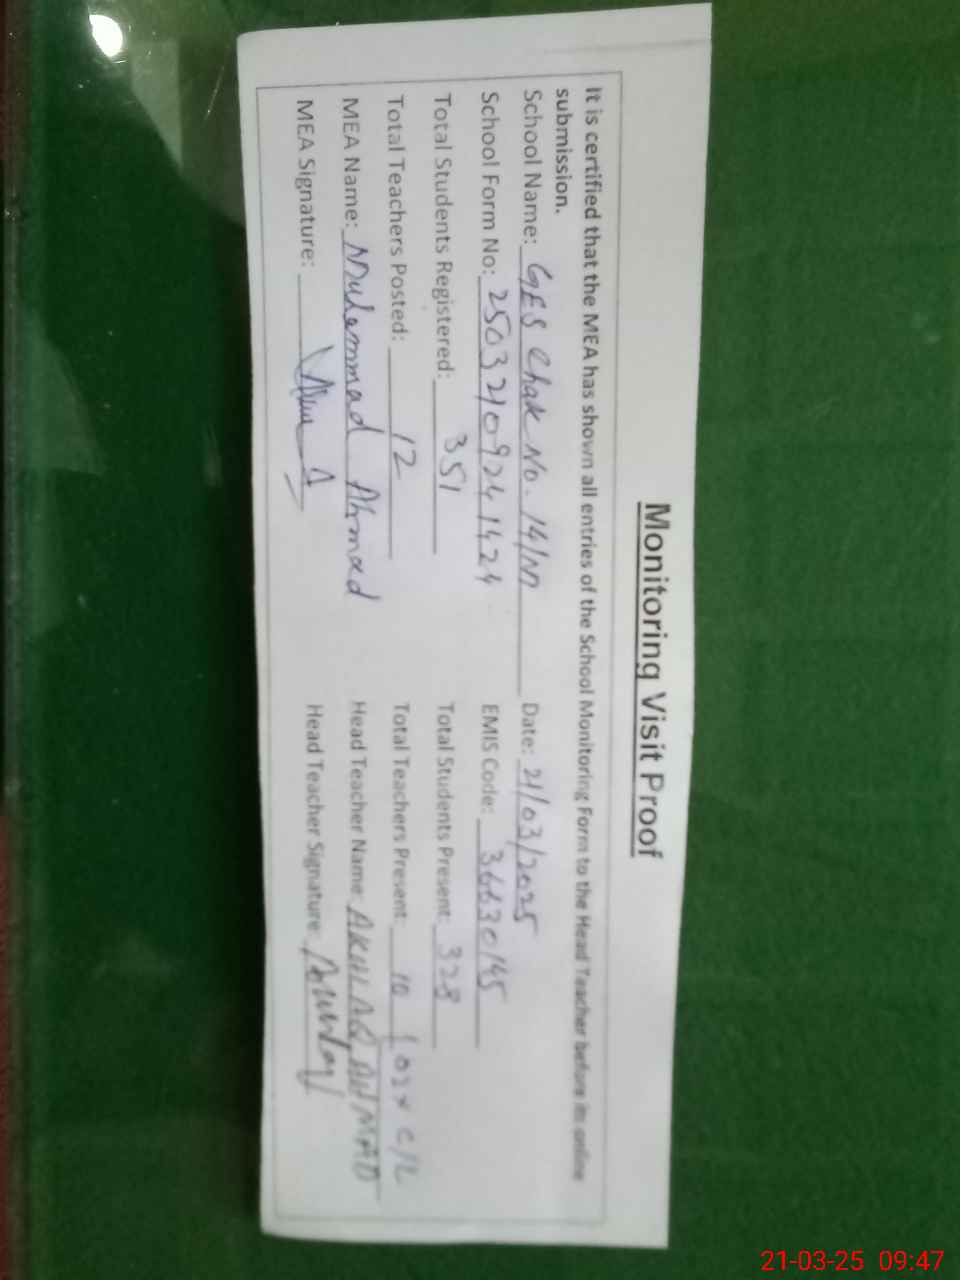 Monitoring Visit Proof
It is certified that the MEA has shown all entries of the School Monitoring Form to the Head Teacher before its online
submission.
School Name: GES Chak No. 14/M Date: 21/03/2025
School Form No: 25032109241424 EMIS Code: 36630145
Total Students Registered: 351 Total Students Present: 328
Total Teachers Posted: 12 Total Teachers Present: 10 (02x C/L
MEA Name: Muhammad Ahmad Head Teacher Name: AHMAD
MEA Signature: Head Teacher Signature:
21-03-25 09:47